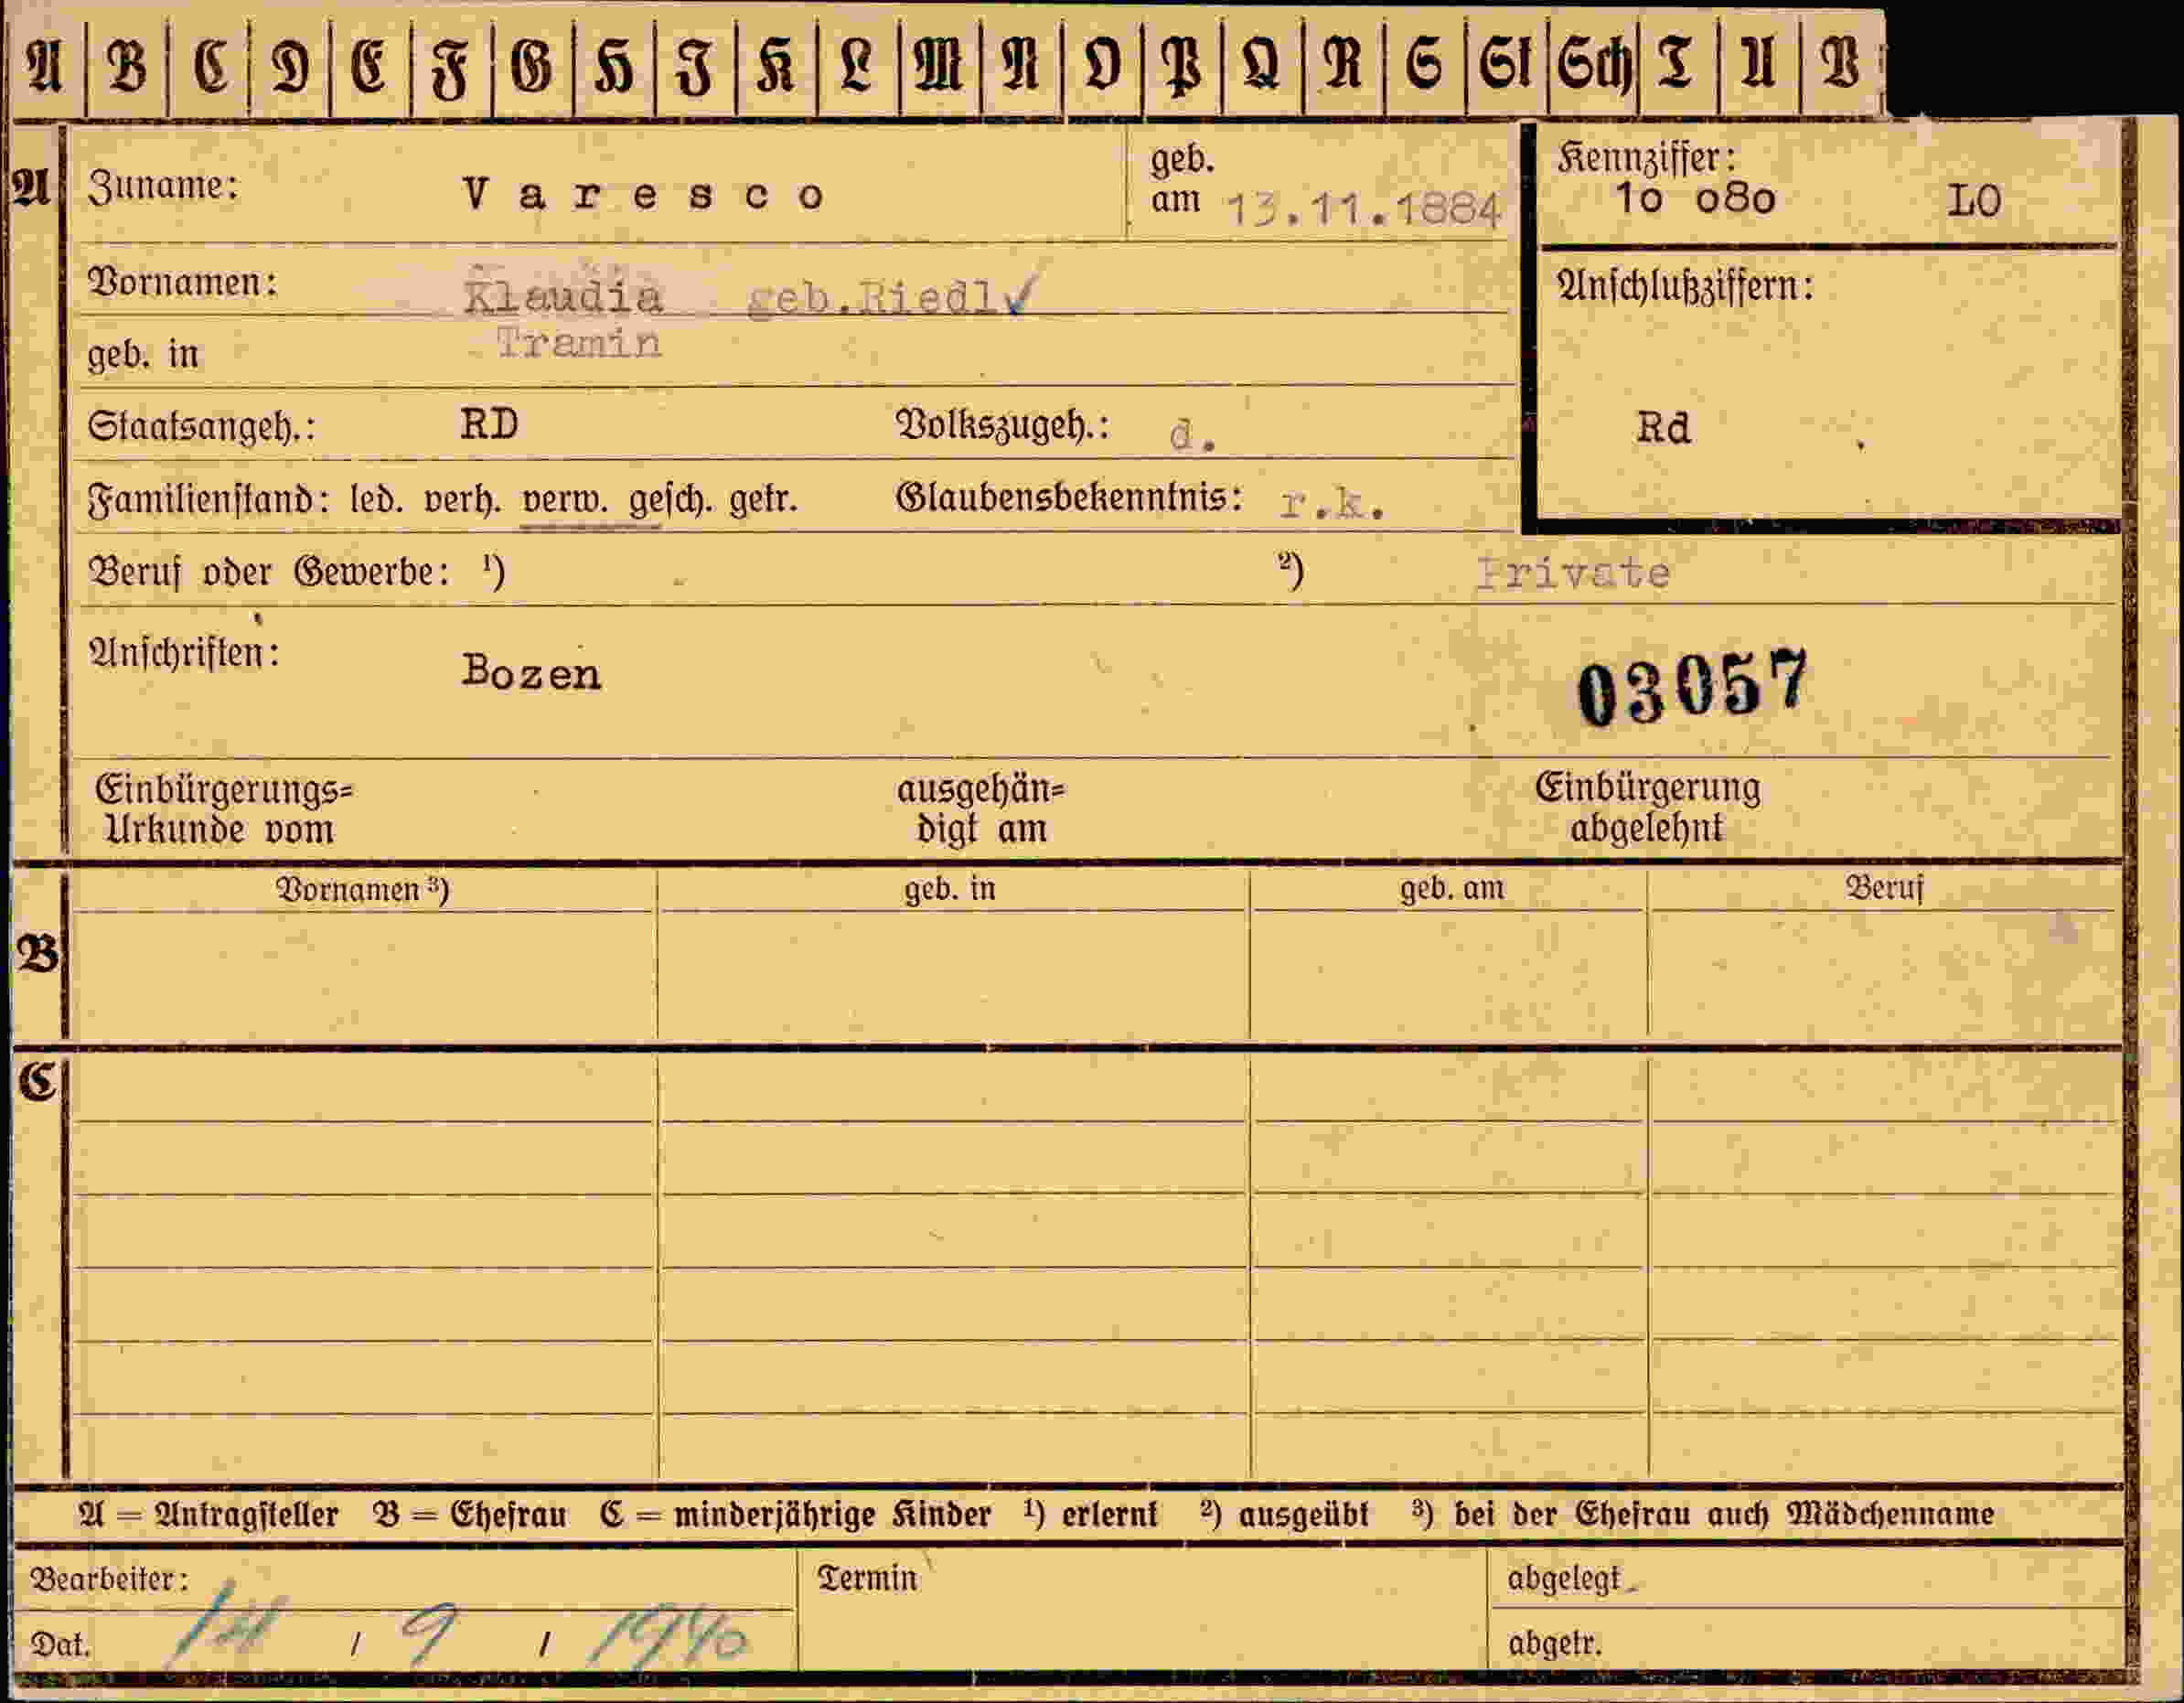 A B C D E F G H I K L M N O P Q R S St Sch T U V
A Zuname: Varesco geb. am 13.11.1884 Kennziffer: 10 080 LO
Vornamen: Klaudia geb.Riedl✓ Anschlußziffern:
geb. in Tramin
Staatsangeh.: RD Volkszugeh.: d. Rd
Familienstand: led. verh. verw. gesch. getr. Glaubensbekenntnis: r.k.
Beruf oder Gewerbe: ¹) ²) Private
Anschriften: Bozen 03057
Einbürgerungs= ausgehän= Einbürgerung
Urkunde vom digt am abgelehnt
Vornamen ³) geb. in geb. am Beruf
B
C
A = Antragsteller B = Ehefrau C = minderjährige Kinder ¹) erlernt ²) ausgeübt ³) bei der Ehefrau auch Mädchenname
Bearbeiter: Termin abgelegt
Dat. 14 / 9 / 1940 abgetr.